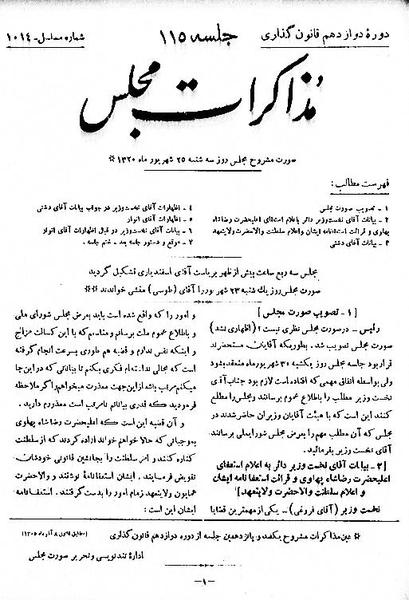 دورهٔ دوازدهم قانون گذاری
جلسه ۱۱۵
شماره مسلسل - ۱۰۱۴
مذاکرات مجلس
صورت مشروح مجلس روز سه شنبه ۲۵ شهریور ماه ۱۳۲۰ *
فهرست مطالب :
۱ - تصویب صورت مجلس
۲ - بیانات آقای نخست‌وزیر دائر باعلام استعفای اعلیحضرت رضاشاه
پهلوی و قرائت استعفانامه ایشان و اعلام سلطنت والاحضرت ولایتعهد
۳ - بیانات آقای دشتی
۴ - اظهارات آقای نخست وزیر در جواب بیانات آقای دشتی
۵ - اظهارات آقای انوار
۶ - بیانات آقای نخست‌وزیر در قبال اظهارات آقای انوار
۷ - موقع و دستور جلسه بعد - ختم جلسه .
مجلس سه ربع ساعت پیش از ظهر بریاست آقای اسفندیاری تشکیل گردید
صورت مجلس روز یک شنبه ۲۳ شهریور را آقای (طوسی) منشی خواندند *
[ ۱ - تصویب صورت مجلس ]
رئیس - در صورت مجلس نظری نیست ؟ (اظهاری نشد)
صورت مجلس تصویب شد. بطوریکه آقایان مستحضرند
قرار بود جلسه مجلس روز یکشنبه ۳۰ شهریور ماه منعقد بشود
ولی بواسطه اتفاق مهمی که افتاده است لازم بود جناب آقای
نخست وزیر مطلب را باطلاع عموم برسانند و مجلس را مطلع
کنند این است که با هیئت آقایان وزیران حاضر شدند در
مجلس که آن مطلب مهم را بعرض مجلس شورایملی برسانند
آقای نخست وزیر بفرمائید.
[۲ - بیانات آقای نخست وزیر دائر به اعلام استعفای
اعلیحضرت رضاشاه پهلوی و قرائت استعفانامه ایشان
و اعلام سلطنت والاحضرت ولایتعهد]
نخست وزیر (آقای فروغی) - یکی از مهمترین قضایا
و امور را که واقع شده است باید بعرض مجلس شورای ملی
و باطلاع عموم ملت برسانم و متأسفم که با این کسالت مزاج
و اینکه نفس ندارم و قضیه هم طوری بسرعت انجام گرفته
است که مجالی نداشته‌ام فکری بکنم تا بیاناتی که در این جا
میکنم مرتب باشد از این جهت معذرت میخواهم اگر ملاحظه
فرمودید که قدری بیاناتم نامرتب است معذورم دارید .
و آن قضیه این است که اعلیحضرت رضاشاه پهلوی
بموجباتی که حالا خواهم خواند اراده کردند که از سلطنت
کناره کنند و امر سلطنت را بجانشین قانونی خودشان
تفویض فرمایند . ایشان استعفا نامهٔ نوشتند و والاحضرت
همایون ولایتعهد زمام امور را بدست گرفتند . استعفا نامه
ایشان این است :
* عین مذاکرات مشروح یکصد و پانزدهمین جلسه از دوره دوازدهم قانون گذاری
اداره تندنویسی و تحریر صورت مجلس
- ۱ -